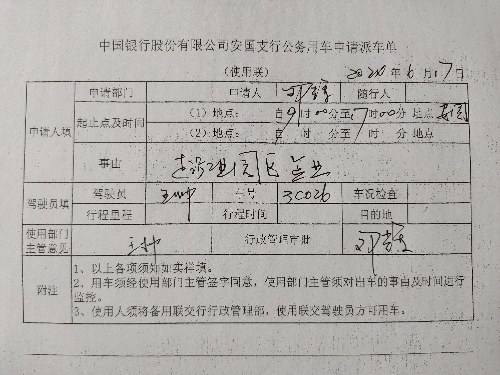 中国银行股份有限公司安国支行公务用车申请派车单
(使用联) 2020年6月17日
申请部门 申请人 随行人
申请人填 起止点及时间 (1)地点: 自9时00分至17时00分 地点 安国
(2)地点: 自 时 分至 时 分 地点
事由 走访园区企业
驾驶员填 驾驶员 车号 3C026 车况检查
行程里程 行程时间 目的地
使用部门主管意见 行政管理审批
附注
1、以上各项须知如实样填。
2、用车须经使用部门主管签字同意，使用部门主管须对出车的事由及时间进行
监控。
3、使用人须将备用联交行行政管理部，使用联交驾驶员方可用车。